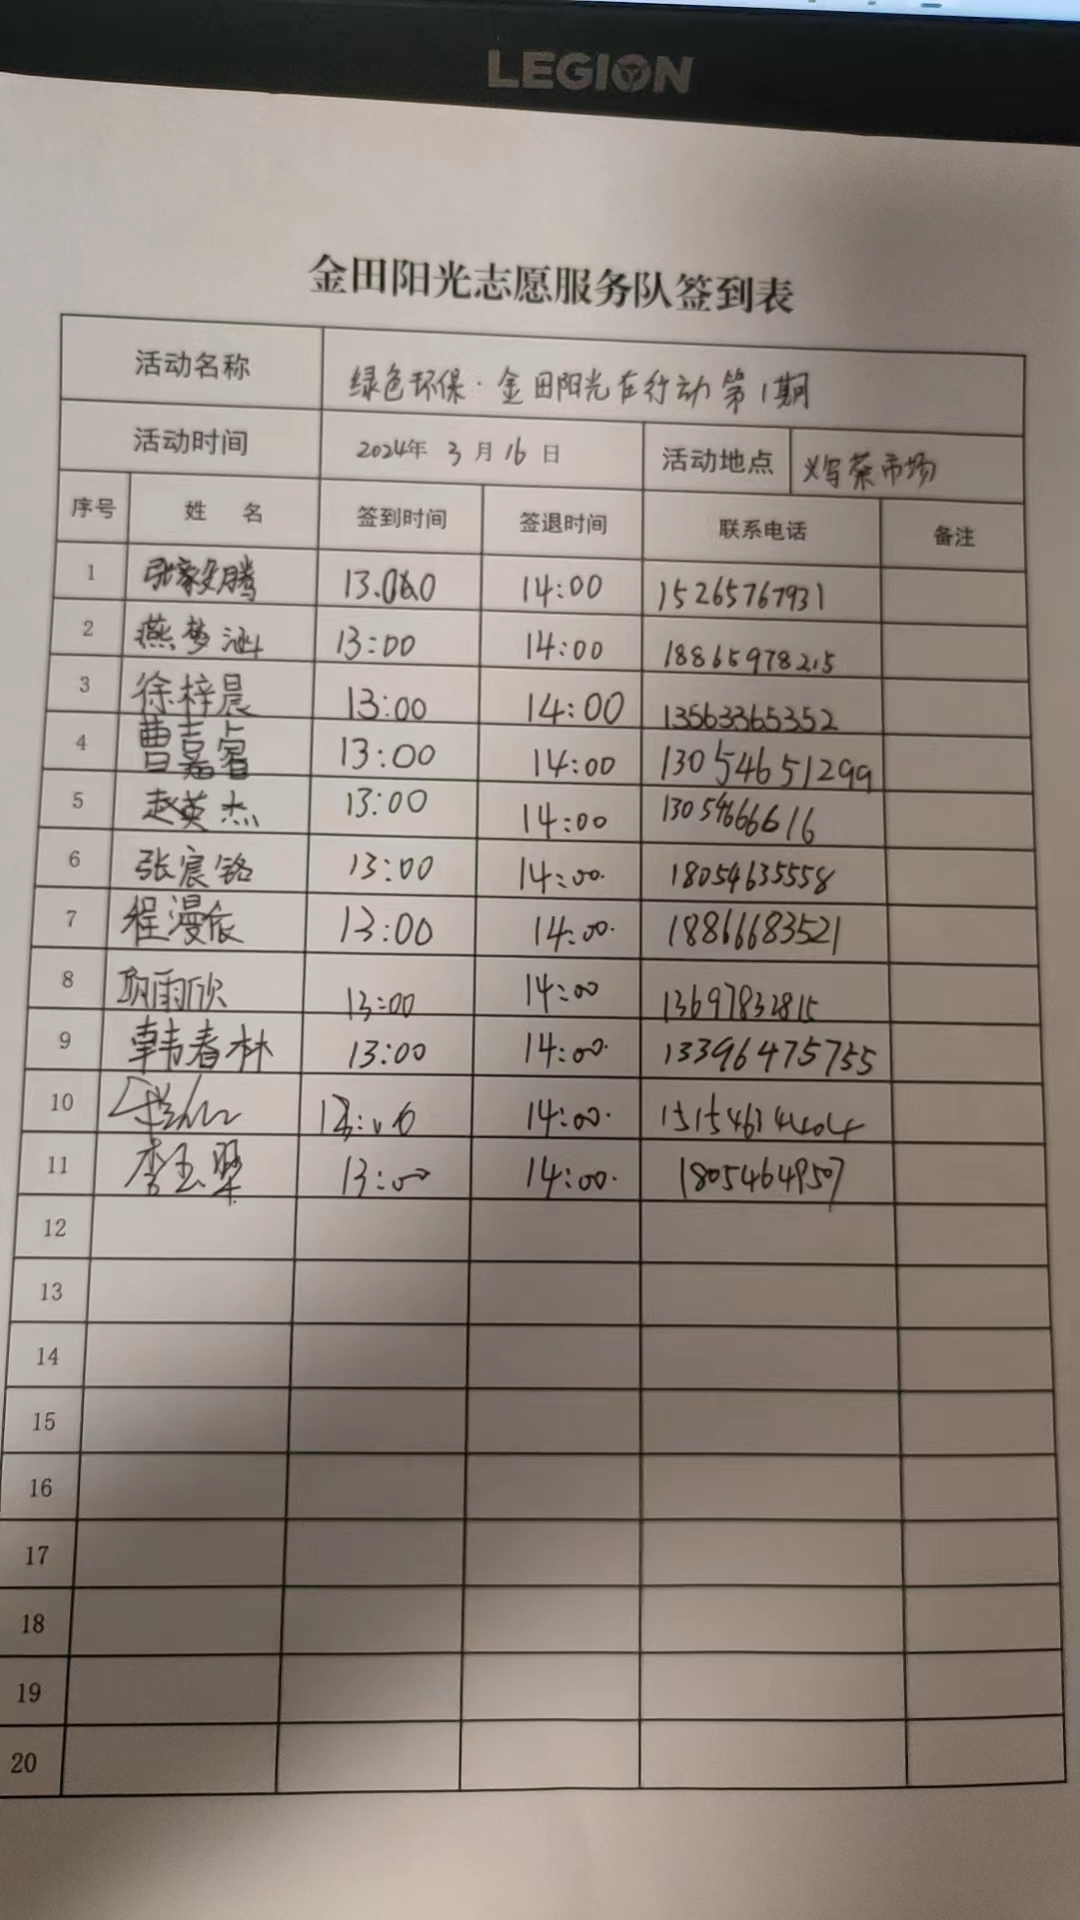 LEGION
金田阳光志愿服务队签到表
活动名称 绿色环保·金田阳光在行动第1期
活动时间 2024年 3月16日 活动地点 菜市场
序号 姓 名 签到时间 签退时间 联系电话 备注
1 张家腾 13:00 14:00 15265767931
2 燕梦涵 13:00 14:00 18865978215
3 徐梓晨 13:00 14:00 13563365352
4 曹嘉睿 13:00 14:00 13054651299
5 赵英杰 13:00 14:00
6 张宸铭 13:00 14:00 18054635558
7 程漫依 13:00 14:00 18866683521
8 雨欣 13:00 14:00 13697832815
9 韩春林 13:00 14:00 13396475755
10 14:00 15154634404
11 李玉 13:00 14:00 18054649507
12
13
14
15
16
17
18
19
20